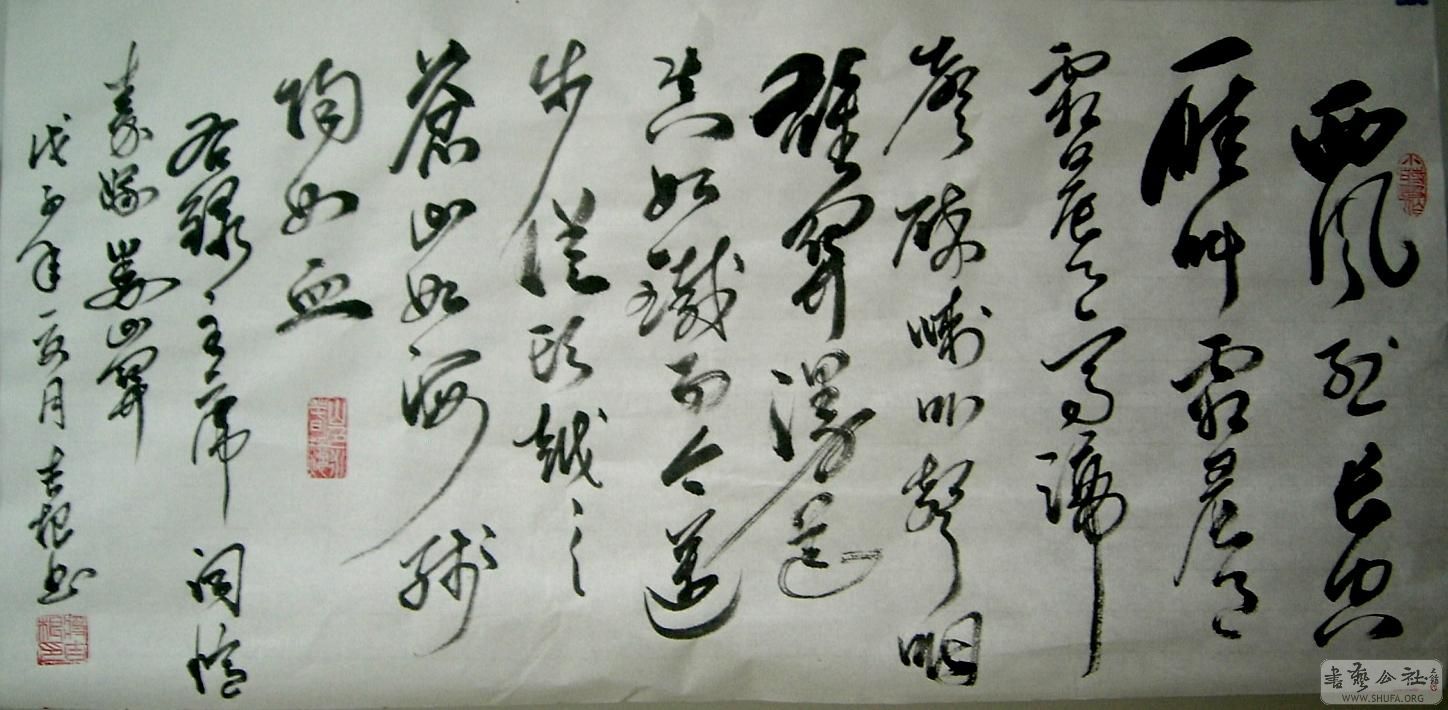 西風烈長空
雁叫霜晨月
霜晨月馬蹄
聲碎喇叭聲咽
雄關漫道
真如鐵而今邁
步從頭越〻
蒼山如海殘
陽如血
右録主席词憶
秦娥婁山關
戊子年月吉根书
書藝公社
WWW.SHUFA.ORG